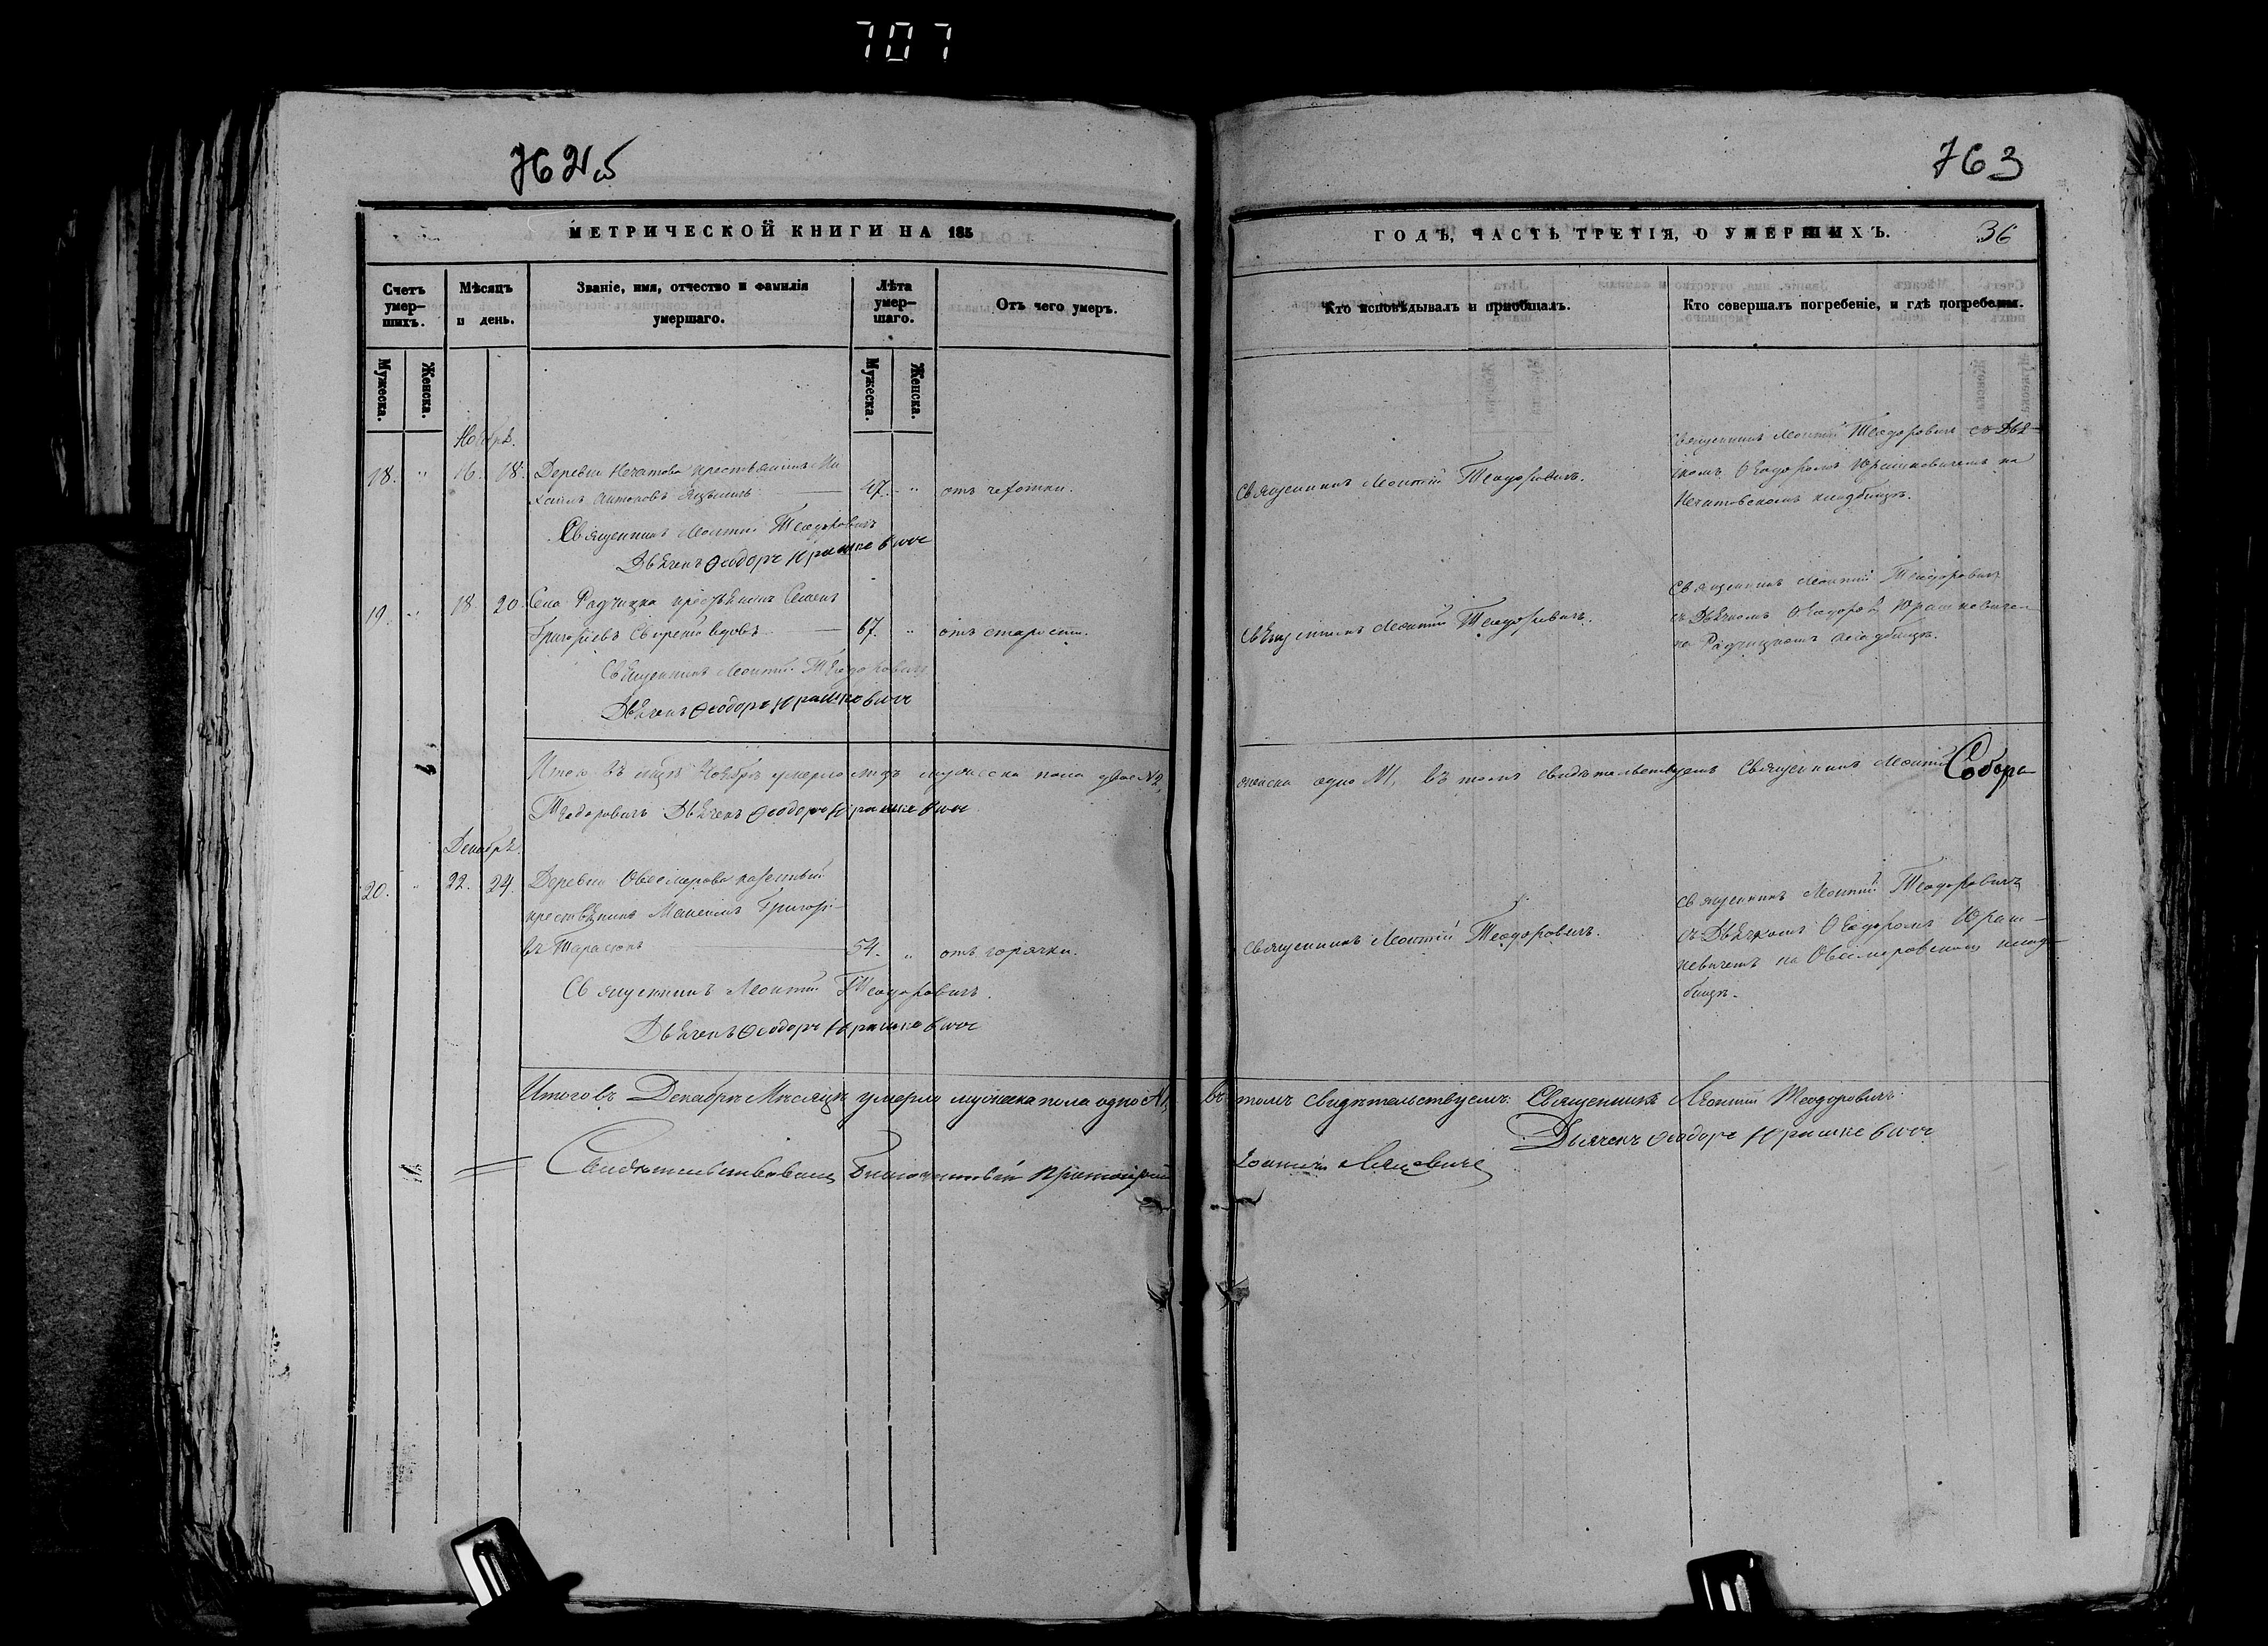 707
763
МЕТРИЧЕСКОЙ КНИГИ НА 185
ГОДЪ, ЧАСТЬ ТРЕТІЯ, О УМЕРШИХЪ.
36
Счетъ умер-шихъ.
Мѣсяцъ и день.
Званіе, имя, отчество и фамилія умершаго.
Лѣта умер-шаго.
Отъ чего умеръ.
Кто исповѣдывалъ и пріобщалъ.
Кто совершалъ погребеніе, и гдѣ погребены.
Мужеска.
Женска.
Мужеска.
Женска.
Ноябрь.
18. " 16. 18. Деревни Нечатова крестьянинъ Ми
хаилъ Антоновъ 47. " отъ чахотки.
Священникъ Леонтій Теодоровичъ
Дьячекъ Ѳеодоръ Юрашкевичъ
Священникъ Леонтій Теодоровичъ.
Священникъ Леонтій Теодоровичъ съ Дья-
чкомъ Ѳеодоромъ Юрашкевичемъ на
Нечатовскомъ кладбищѣ.
19. " 18. 20. Села Радчицка крестьянинъ Семенъ
Григорьевъ вдовъ 67. " отъ старости.
Священникъ Леонтій Теодоровичъ
Дьячекъ Ѳеодоръ Юрашкевичъ
Священникъ Леонтій Теодоровичъ.
Священникъ Леонтій Теодоровичъ
съ Дьячкомъ Ѳеодоромъ Юрашкевичемъ
на Радчицкомъ кладбищѣ.
Итого въ Ноябрѣ умерло мужеска пола двое №2,
женска одно №1, въ томъ свидѣтельствуемъ Священникъ Леонтій
Теодоровичъ Дьячекъ Ѳеодоръ Юрашкевичъ
Декабрь.
20. " 22. 24. Деревни Овсемерова казенный
крестьянинъ Максимъ Григорь-
въ Тарасюкъ 54. " отъ горячки.
Священникъ Леонтій Теодоровичъ.
Дьячекъ Ѳеодоръ Юрашкевичъ
Священникъ Леонтій Теодоровичъ.
Священникъ Леонтій Теодоровичъ
съ Дьячкомъ Ѳеодоромъ Юраш-
кевичемъ на Овсемеровскомъ клад-
бищѣ.
Итого въ Декабрѣ Мѣсяцѣ умерло мужеска пола одно №1, въ томъ свидѣтельствуемъ: Священникъ Леонтій Теодоровичъ.
Дьячекъ Ѳеодоръ Юрашкевичъ
Свидѣтельствовалъ Благочинный Протоіерей Іоаннъ